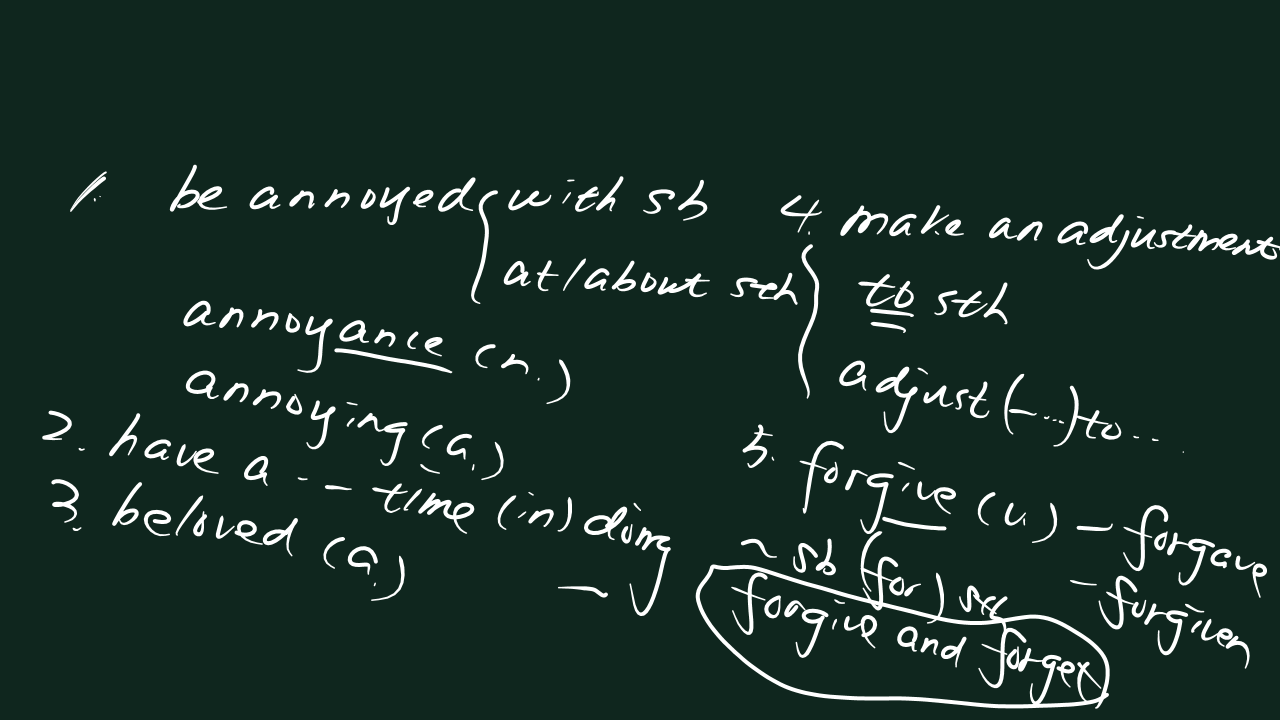 1. be annoyed with sb
at/about sth
annoyance (n.)
annoying (a.)
2. have a -- - time (in) doing
3. beloved (a.)
4. make an adjustments
to sth
adjust (-...) to ...
5. forgive (v.) - forgave
- forgiven
~ sb (for) sth
forgive and forget